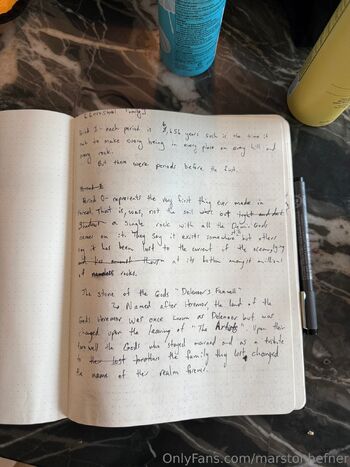 Period 1- each period is 8,456 years such is the time it
took to make every being in every place on every hill and
every rock.
But there were periods before the first.
Period 0- represents the very first thing ever made in
That is, was, not the soil
a single rock with all the Demi Gods
came on it. They say it exists somewhere but others
it has been lost to the current of the
at its bottom among its millions
of rocks.
The stone of the Gods "Delenor's Farewell"
Named after the land of the
Gods. was once known as Delenor but was
changed upon the leaving of "The Artists". Upon their
farewell the Gods who stayed mourned and as a tribute
to the family they lost, changed
the name of their realm forever.
OnlyFans.com/marstonhefner